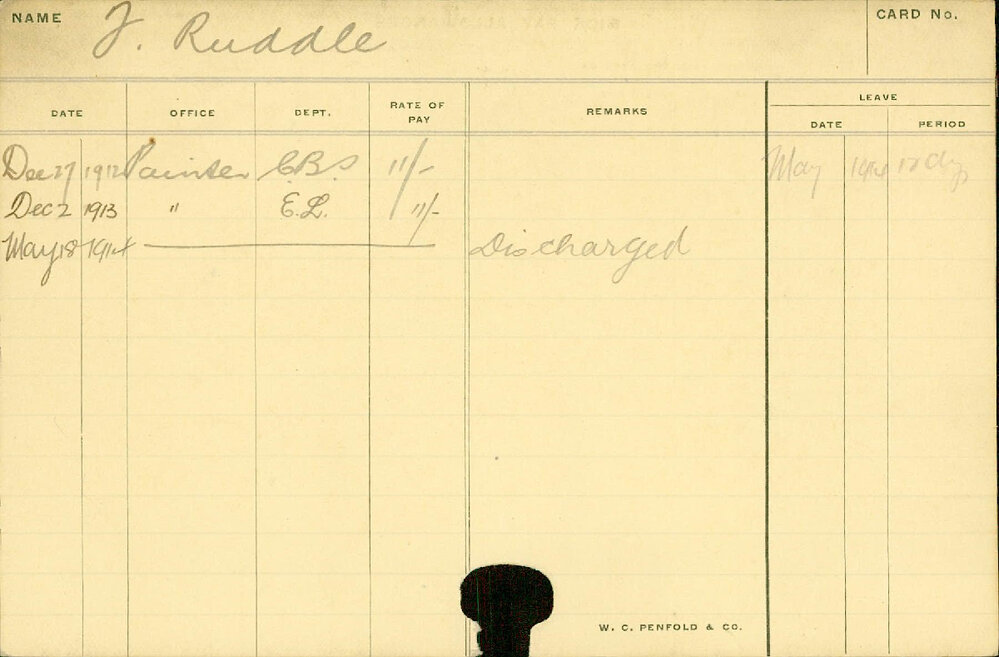 NAME J. Ruddle CARD No.
LEAVE
DATE OFFICE DEPT. RATE OF PAY REMARKS DATE PERIOD
Dec 27 1912 Painter C.B.S 11/- May 1914 12 dys
Dec 2 1913 " E.L. 11/-
May 18 1914 Discharged
W. C. PENFOLD & CO.